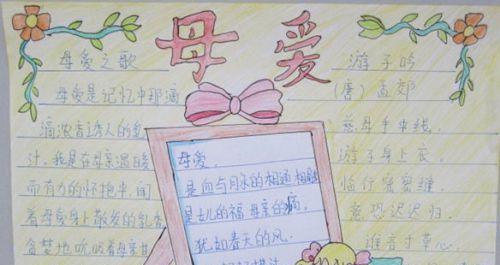 母爱
母爱之歌
母爱是记忆中那涵
滴浓香诱人的乳
汁,我是在母亲温暖
而有力的怀抱中,闻
着母爱身上散发的乳香
贪婪地吮吸着母亲甘
母爱.
是血与
是儿的福 母亲的
犹如春天的风.
游子吟
(唐) 孟郊
慈母手中线.
游子身上衣
临行密密缝.
意恐迟迟归.
谁言寸草心.